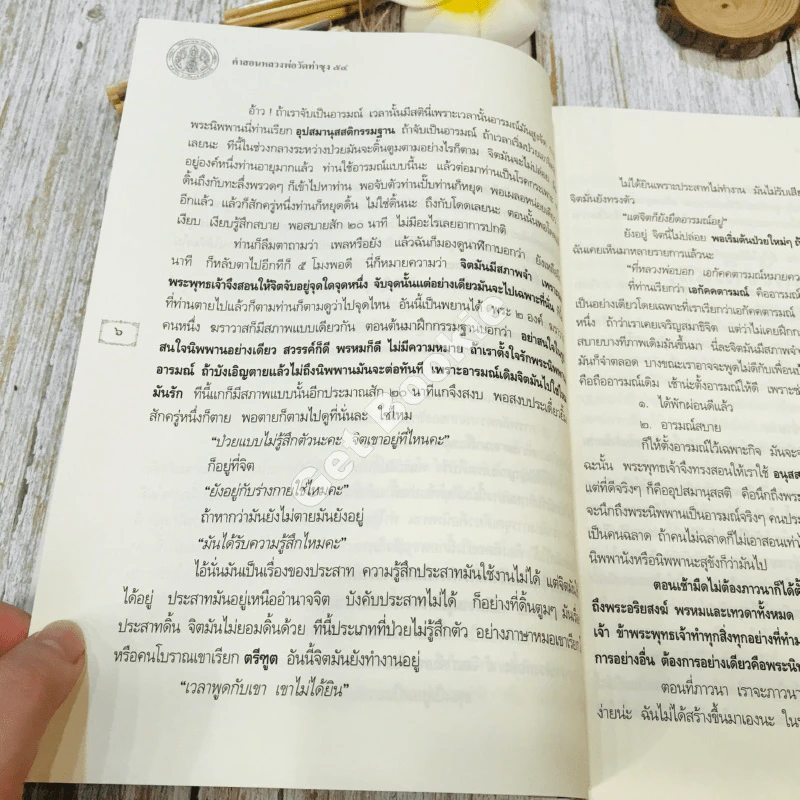 คำสอนหลวงพ่อวัดท่าซุง ๕๔
อ้าว ! ถ้าเราจับเป็นอารมณ์ เวลานั้นมีสตินี่เพราะเวลานั้นอารมณ์มันสูงจัด
พระนิพพานนี่ท่านเรียก อุปสมานุสสติกรรมฐาน ถ้าจับเป็นอารมณ์ ถ้าเวลาเริ่มป่วยมัน
เลยนะ ทีนี้ในช่วงกลางระหว่างป่วยมันจะดิ้นตูมตามอย่างไรก็ตาม จิตมันจะไม่ปล่อย
อยู่องค์หนึ่งท่านอายุมากแล้ว ท่านใช้อารมณ์แบบนี้นะ แล้วต่อมาท่านเป็นโรคกระเพาะ
ดิ้นถึงกับทะลึ่งพรวดๆ ก็เข้าไปหาท่าน พอจับตัวท่านปั๊บท่านก็หยุด พอเผลอหน่อยเดียว
อีกแล้ว แล้วก็สักครู่หนึ่งท่านก็หยุดดิ้น ไม่ใช่ดิ้นนะ ถึงกับโดดเลยนะ ตอนนั้นพอ
เงียบ เงียบรู้สึกสบาย พอสบายสัก ๒๐ นาที ไม่มีอะไรเลยอาการปกติ
ท่านก็ลืมตาถามว่า เพลหรือยัง แล้วฉันก็มองดูนาฬิกาบอกว่า ยังเหลือ
นาที ก็หลับตาไปอีกทีก็ ๕ โมงพอดี นี่ก็หมายความว่า จิตมันมีสภาพจำ เพราะ
พระพุทธเจ้าจึงสอนให้จิตจับอยู่จุดใดจุดหนึ่ง จับจุดนั้นแต่อย่างเดียวมันจะไปเฉพาะที่นั้น
ที่ท่านตายไปแล้วก็ตามท่านก็ตามดูว่าไปจุดไหน อันนี้เป็นพยานได้ พระ ๒ องค์ ฆราวาส
๖
คนหนึ่ง ฆราวาสก็มีสภาพแบบเดียวกัน ตอนต้นมาฝึกกรรมฐานบอกว่า อย่าสนใจ
สนใจนิพพานอย่างเดียว สวรรค์ก็ดี พรหมก็ดี ไม่มีความหมาย ถ้าเราตั้งใจรักพระนิพพาน
อารมณ์ ถ้าบังเอิญตายแล้วไม่ถึงนิพพานมันจะต่อทันที เพราะอารมณ์เดิมจิตมันไปใช้
มันรัก ทีนี้แกก็มีสภาพแบบนั้นอีกประมาณสัก ๒๐ นาทีแกจึงสงบ พอสงบประเดี๋ยว
สักครู่หนึ่งก็ตาย พอตายก็ตามไปดูที่นั่นละ ใช่ไหม
“ป่วยแบบไม่รู้สึกตัวนะคะ จิตเขาอยู่ที่ไหนคะ”
ก็อยู่ที่จิต
“ยังอยู่กับร่างกายใช่ไหมคะ”
ถ้าหากว่ามันยังไม่ตายมันยังอยู่
“มันได้รับความรู้สึกไหมคะ”
ไอ้นั่นมันเป็นเรื่องของประสาท ความรู้สึกประสาทมันใช้งานไม่ได้ แต่จิตมัน
ได้อยู่ ประสาทมันอยู่เหนืออำนาจจิต บังคับประสาทไม่ได้ ก็อย่างที่ดิ้นตูมๆ มัน
ประสาทดิ้น จิตมันไม่ยอมดิ้นด้วย ทีนี้ประเภทที่ป่วยไม่รู้สึกตัว อย่างภาษาหมอเขาเรียก
หรือคนโบราณเขาเรียก ตรีทูต อันนี้จิตมันยังทำงานอยู่
“เวลาพูดกับเขา เขาไม่ได้ยิน”
ไม่ได้ยินเพราะประสาทไม่ทำงาน มันไม่รับ
จิตมันยังทรงตัว
“แต่จิตก็ยังยึดอารมณ์อยู่”
ยังอยู่ จิตนี่ไม่ปล่อย พอเริ่มต้นป่วยใหม่ๆ ถ้า
ฉันเคยเห็นมาหลายรายการแล้วนะ
“ที่หลวงพ่อบอก เอกัคคตารมณ์หมายความ
ที่ท่านเรียกว่า เอกัคคตารมณ์ คืออารมณ์
เป็นอย่างเดียวโดยเฉพาะที่เราเรียกว่าเอกัคคตารมณ์
หนึ่ง ถ้าว่าเราเคยเจริญสมาธิจิต แต่ว่าไม่เคยฝึก
สบายบางทีภาพเดิมมันขึ้นมา นี่ละจิตมันมีสภาพจำ
มันก็จำตลอด บางขณะเราอาจจะพูดไม่ดีกับเพื่อน
คือถืออารมณ์เดิม เช้าน่ะตั้งอารมณ์ให้ดี เพราะ
๑. ได้พักผ่อนดีแล้ว
๒. อารมณ์สบาย
ก็ให้ตั้งอารมณ์ไว้เฉพาะกิจ มันจะ
ฉะนั้น พระพุทธเจ้าจึงทรงสอนให้เราใช้ อนุสส
แต่ที่ดีจริงๆ ก็คืออุปสมานุสสติ คือนึกถึงพระ
จะนึกถึงพระนิพพานเป็นอารมณ์จริงๆ คน
เป็นคนฉลาด ถ้าคนไม่ฉลาดก็ไม่เอาสอน
นิพพานังหรือนิพพานะสุขังก็ว่ามันไป
ตอนเช้ามืดไม่ต้องภาวนาก็ได้
ถึงพระอริยสงฆ์ พรหมและเทวดาทั้งหมด
เจ้า ข้าพระพุทธเจ้าทำทุกสิ่งทุกอย่างที่ทำ
การอย่างอื่น ต้องการอย่างเดียวคือพระ
ตอนที่ภาวนา เราจะภาวนา
ง่ายน่ะ ฉันไม่ได้สร้างขึ้นมาเองนะ ใน
Get Books